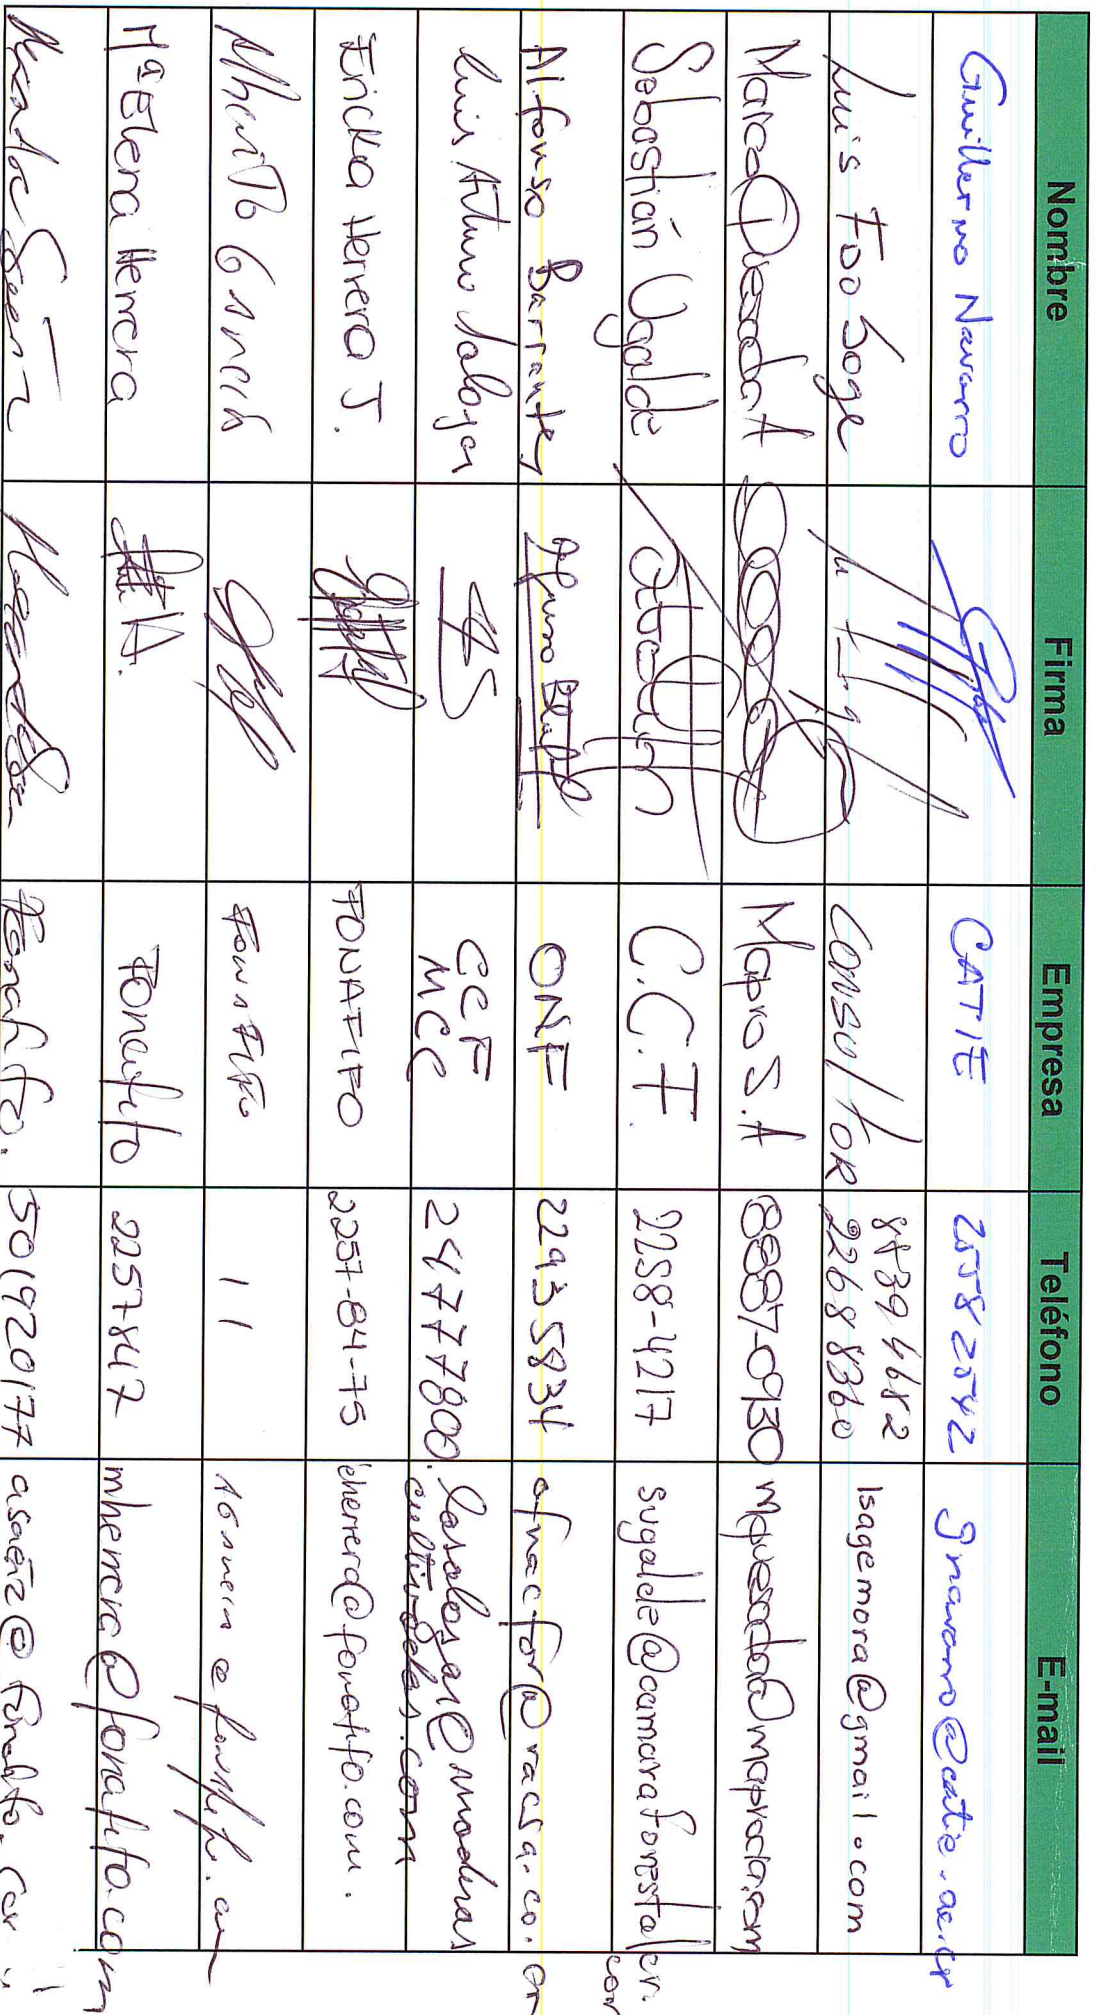 Nombre Firma Empresa Teléfono E-mail
Guillermo Navarro CATIE 2558 2542 gnavarro@catie.ac.cr
Luis Foo Sage Consultor 8839 4682 isagemora@gmail.com
2268 8360
Marco Quesada A Mapro S.A 8887-0930 mquesada@maprocr.com
Sebastián Ugalde C.C.F. 2258-4217 sugalde@camaraforestalcr.
com
Alfonso Barrantes ONF 2293 5834 ofnacfor@racsa.co.cr
Luis Arturo Salazar CCF 24777800 lasalasar@maderas
MCC cultivadas.com
Ericka Herrera J. FONAFIFO 2257-84-75 eherrera@fonafifo.com.
Fonafifo 11
Mª Elena Herrera Fonafifo 2257 847 mherrera@fonafifo.com
Fonafifo. 5019 20177 asaenz@fonafifo.com